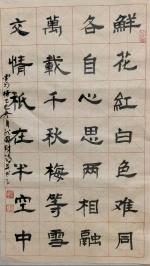 鮮花紅白色難同
各自心思兩相融
萬載千秋梅等雪
交情秖在半空中